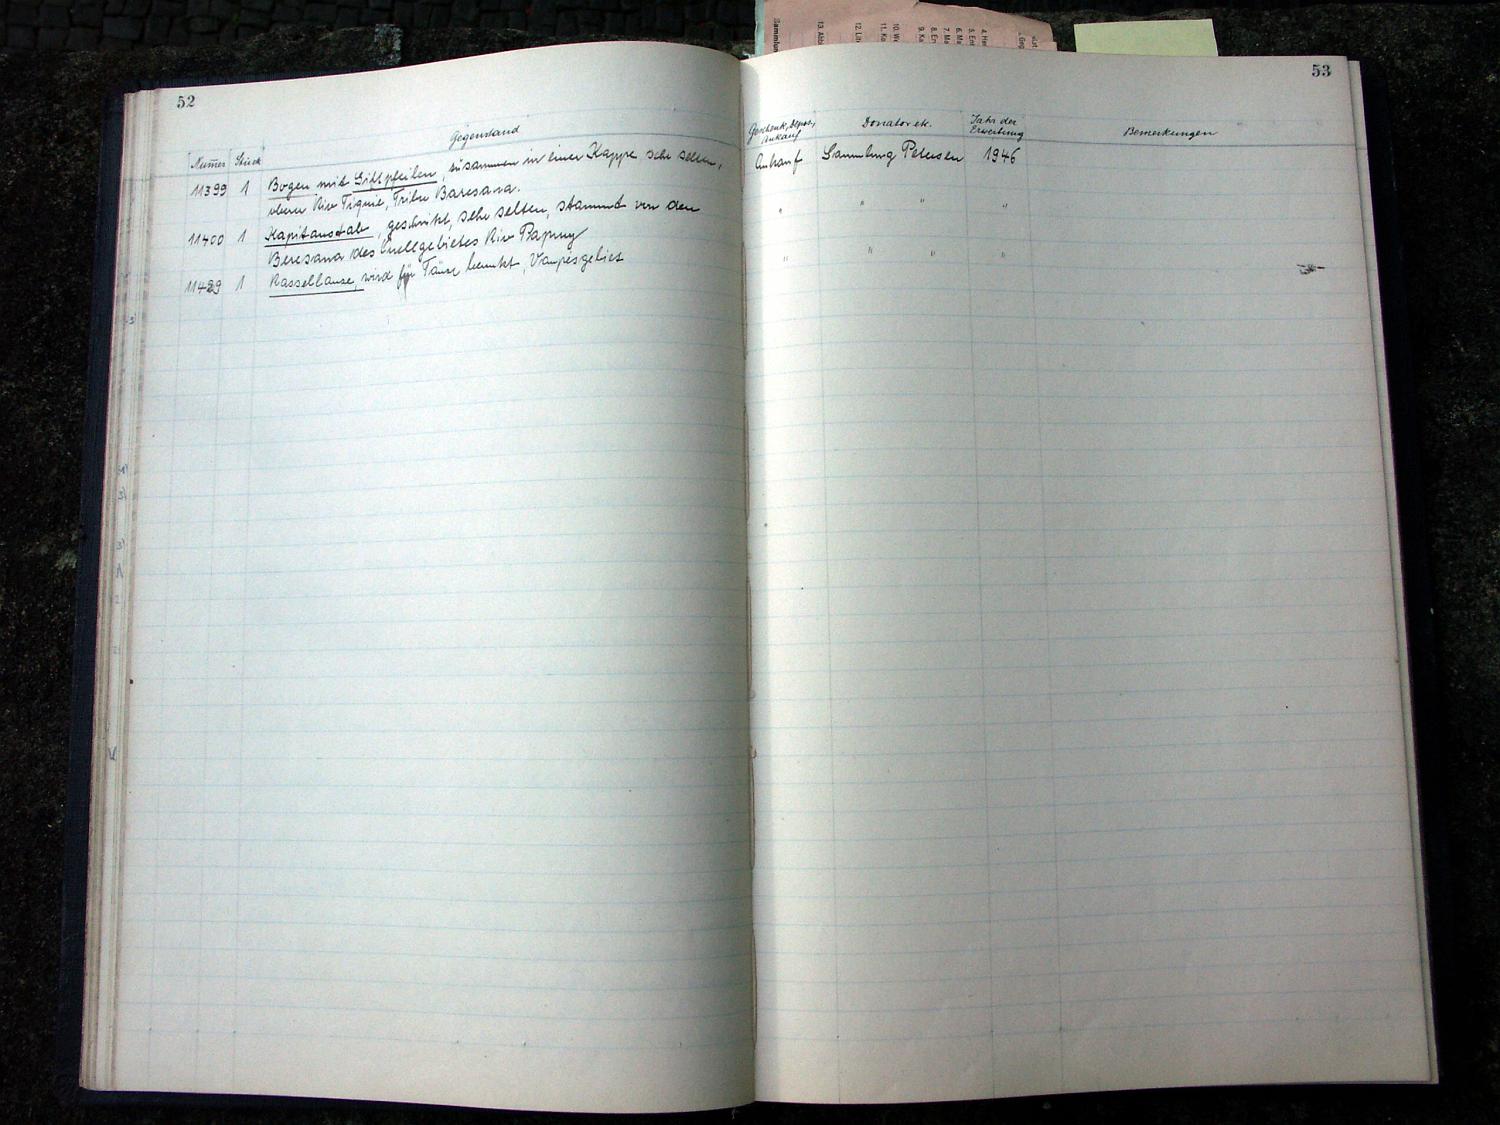 52
Nummer Stück Gegenstand
11399 1 Bogen mit Giftpfeilen, zusammen in einer Kappe sehr selten,
oberer Rio Tiquie, Tribu Baresana.
11400 1 Kapitanstab, geschnitzt, sehr selten, stammt von den
Beresana des Quellgebietes Rio
11429 1 Rassel wird für Tänze benutzt, Vaupésgebiet
53
Geschenk, Depos, Ankauf Donator etc. Jahr der Erwerbung Bemerkungen
Ankauf Sammlung Petersen 1946
" " " "
" " " "
4. He
5. Ed
6. Ma
7. Ma
8. En
9. Ka
10. We
11. Ka
12. Lite
13. Abb
Sammlun